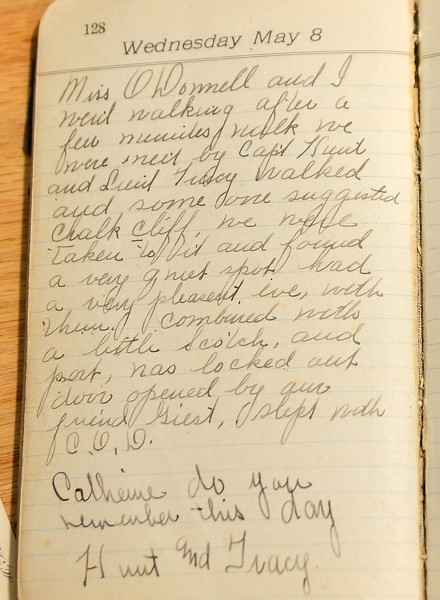 128
Wednesday May 8
Miss O'Donnell and I
went walking after a
few minutes walk we
were met by Capt Hunt
and Lieut Tracy walked
and some one suggested
Chalk Cliff, we were
taken to it and found
a very quiet spot had
a very pleasent eve, with
them, combined with
a little scotch, and
port, was locked out
door opened by our
friend Giest, slept with
C. O. D.
Catherine do you
remember this day
Hunt and Tracy.